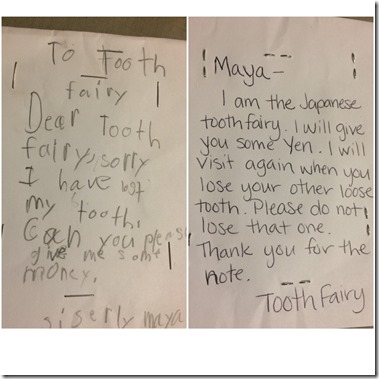 To Tooth
fairy
Dear Tooth
fairy, sorry
I have lost
my tooth.
Can you please
give me some
money.
siserly maya
Maya-
I am the Japanese
toothfairy. I will give
you some Yen. I will
visit again when you
lose your other loose
tooth. Please do not
lose that one.
Thank you for the
note.
Tooth Fairy